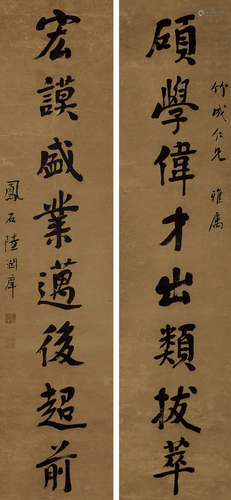 碩學偉才出類拔萃
竹成仁兄 雅屬
宏謨盛業邁後超前
鳳石陸潤庠